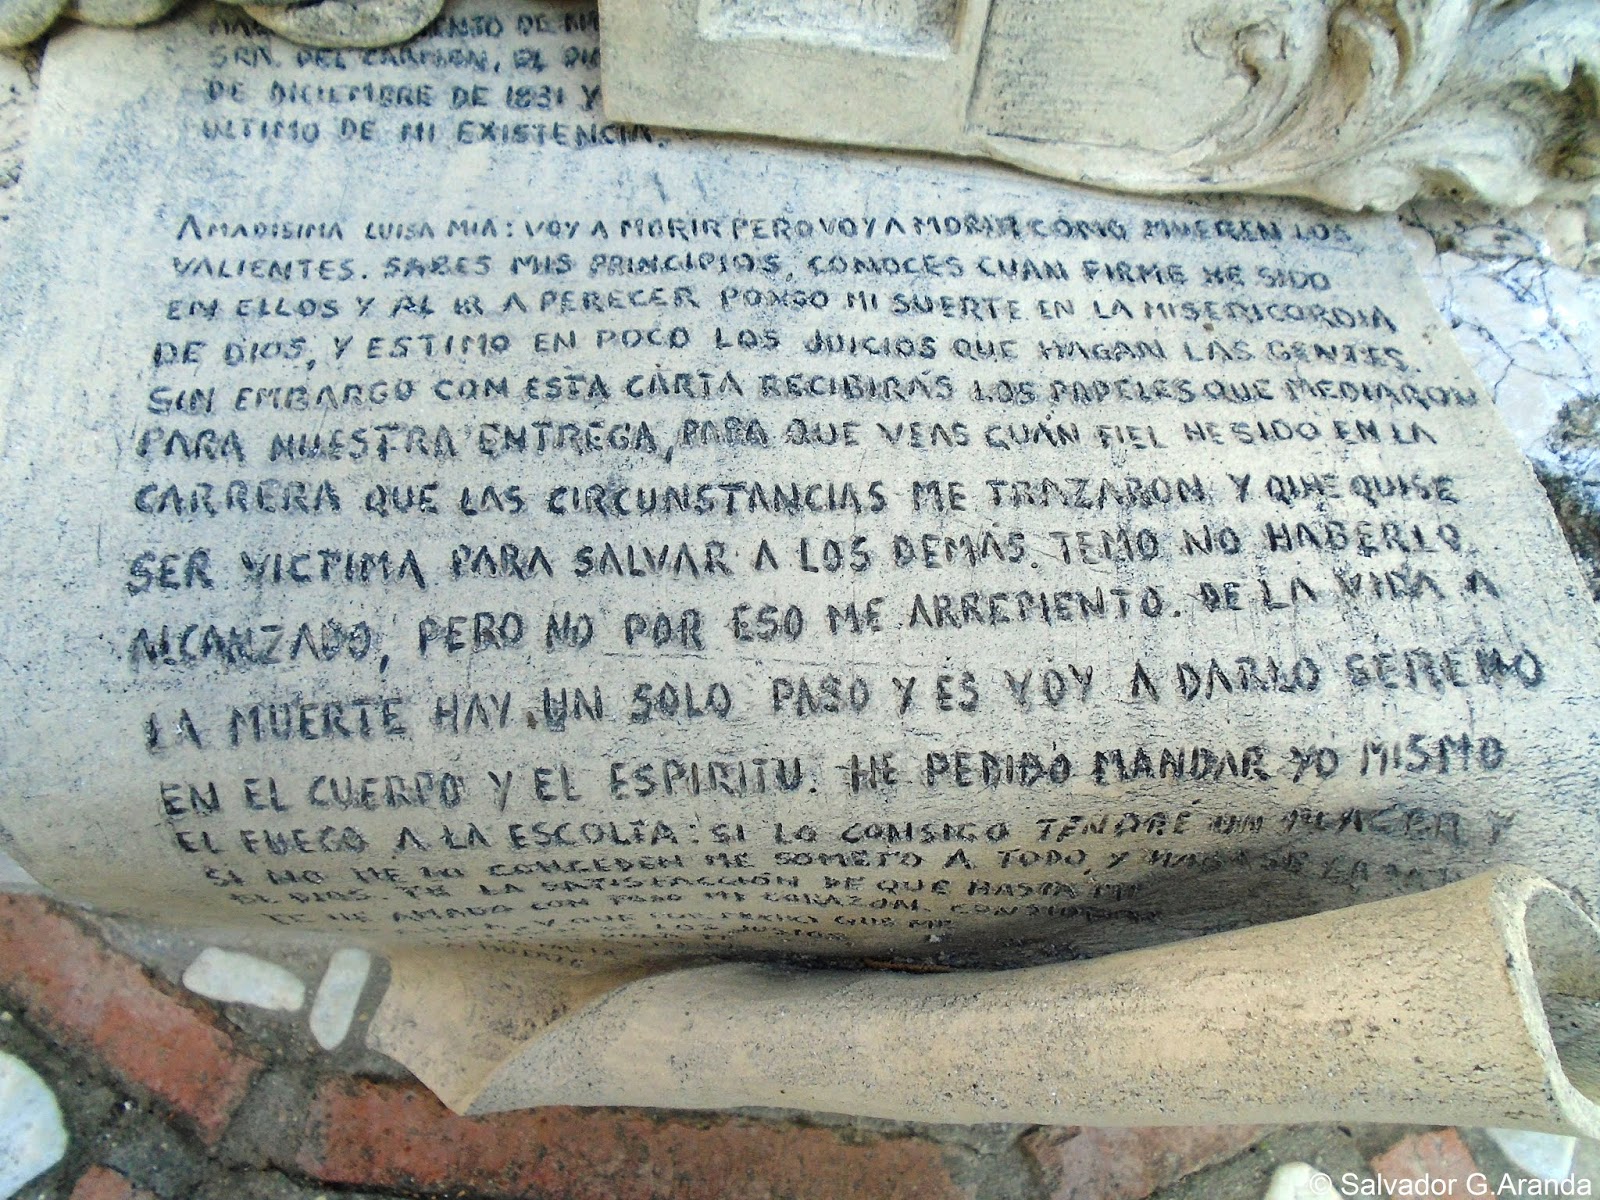 DE
SRA. DEL CARMEN, EL DIA
DE DICIEMBRE DE 1831 Y
ULTIMO DE MI EXISTENCIA.
AMADISIMA LUISA MIA: VOY A MORIR PERO VOY A MORIR COMO MUEREN LOS
VALIENTES. SABES MIS PRINCIPIOS, CONOCES CUAN FIRME HE SIDO
EN ELLOS Y AL IR A PERECER PONGO MI SUERTE EN LA MISERICORDIA
DE DIOS, Y ESTIMO EN POCO LOS JUICIOS QUE HAGAN LAS GENTES.
SIN EMBARGO CON ESTA CARTA RECIBIRAS LOS PAPELES QUE MEDIARON
PARA NUESTRA ENTREGA, PARA QUE VEAS CUÁN FIEL HE SIDO EN LA
CARRERA QUE LAS CIRCUNSTANCIAS ME TRAZARON Y QUE QUISE
SER VICTIMA PARA SALVAR A LOS DEMÁS. TEMO NO HABERLO
ALCANZADO, PERO NO POR ESO ME ARREPIENTO. DE LA VIDA A
LA MUERTE HAY UN SOLO PASO Y ES VOY A DARLO SERENO
EN EL CUERPO Y EL ESPIRITU. HE PEDIDO MANDAR YO MISMO
EL FUEGO A LA ESCOLTA: SI LO CONSIGO TENDRÉ UN PLACER Y
SI NO ME LO CONCEDEN ME SOMETO A TODO, Y HAGASE LA
DE DIOS. TEN LA SATISFACCIÓN DE QUE HASTA MI
TE HE AMADO CON TODO MI CORAZON. CONSIDERA
Y QUE QUE ME
LOS JUSTOS
© Salvador G.Aranda